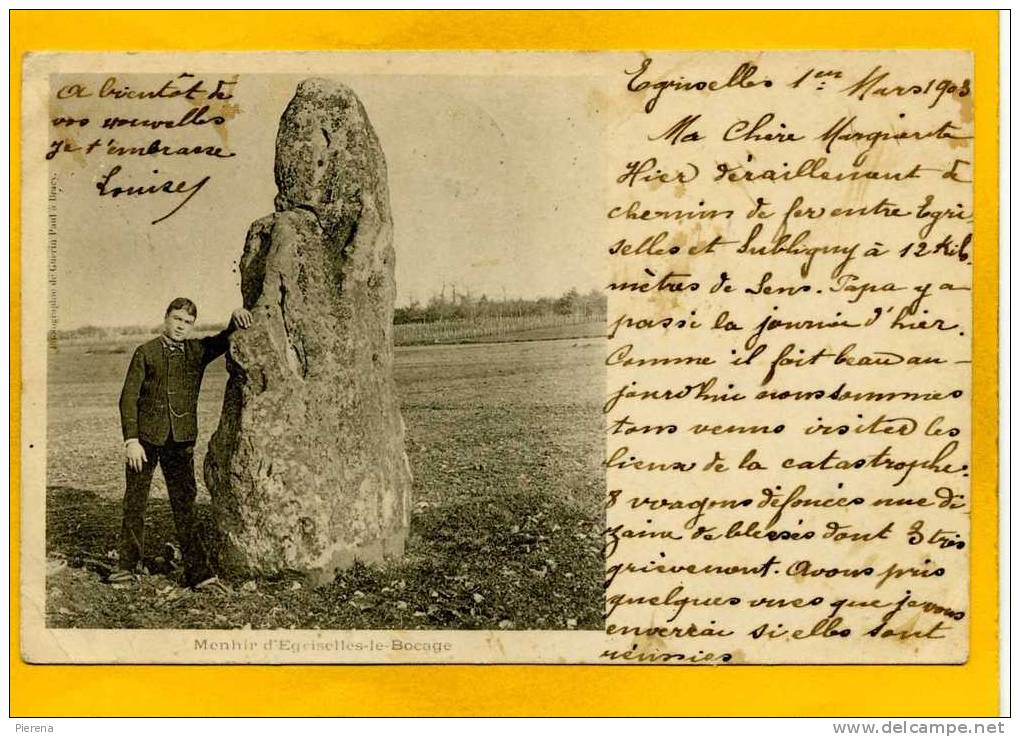 Egriselles 1er Mars 1903
Ma Chère Marguerite
Hier déraillement de
chemin de fer entre Egri-
selles et Subligny à 12 kilo-
mètres de Sens. Papa y a
passé la journée d'hier.
Comme il fait beau au-
jourd'hui nous sommes
tous venus visiter les
lieux de la catastrophe.
8 wagons défoncés une di-
zaine de blessés dont 3 très
grièvement. Avons pris
quelques vues que je vous
enverrai si elles sont
réussies
A bientôt de
vos nouvelles
Je t'embrasse
Louise
Photographie de Guérin Paul à Dracy.
Menhir d'Egriselles-le-Bocage
Pierena
http://www.delcampe.net